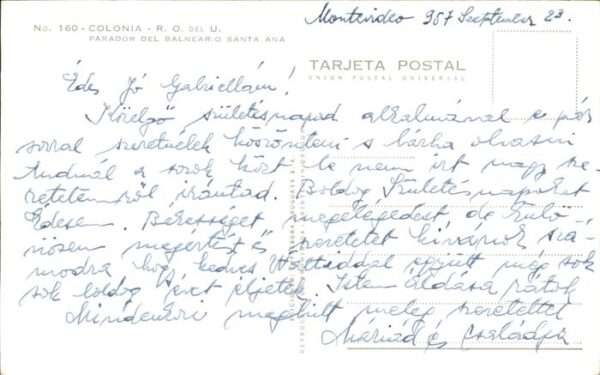 Montevideo 957 Szeptember 23.
No. 160 - COLONIA - R. O. DEL U.
PARADOR DEL BALNEARIO SANTA ANA
TARJETA POSTAL
UNION POSTAL UNIVERSAL
Édes Jó Gabriellám!
Közelgő születésnapod alkalmával e pár
sorral szeretnélek köszönteni s bárha olvasni
tudnál a sorok közt le nem írt nagy sze-
retetemről irántad. Boldog Születésnapokat
Édesem. Békességet megelégedést, de külö-
nösen megértést és szeretetet kívánok szá-
modra hogy kedves együtt még sok
sok boldog évet éljetek. Isten áldása rátok
Mindenkori meghitt meleg szeretettel
és családja